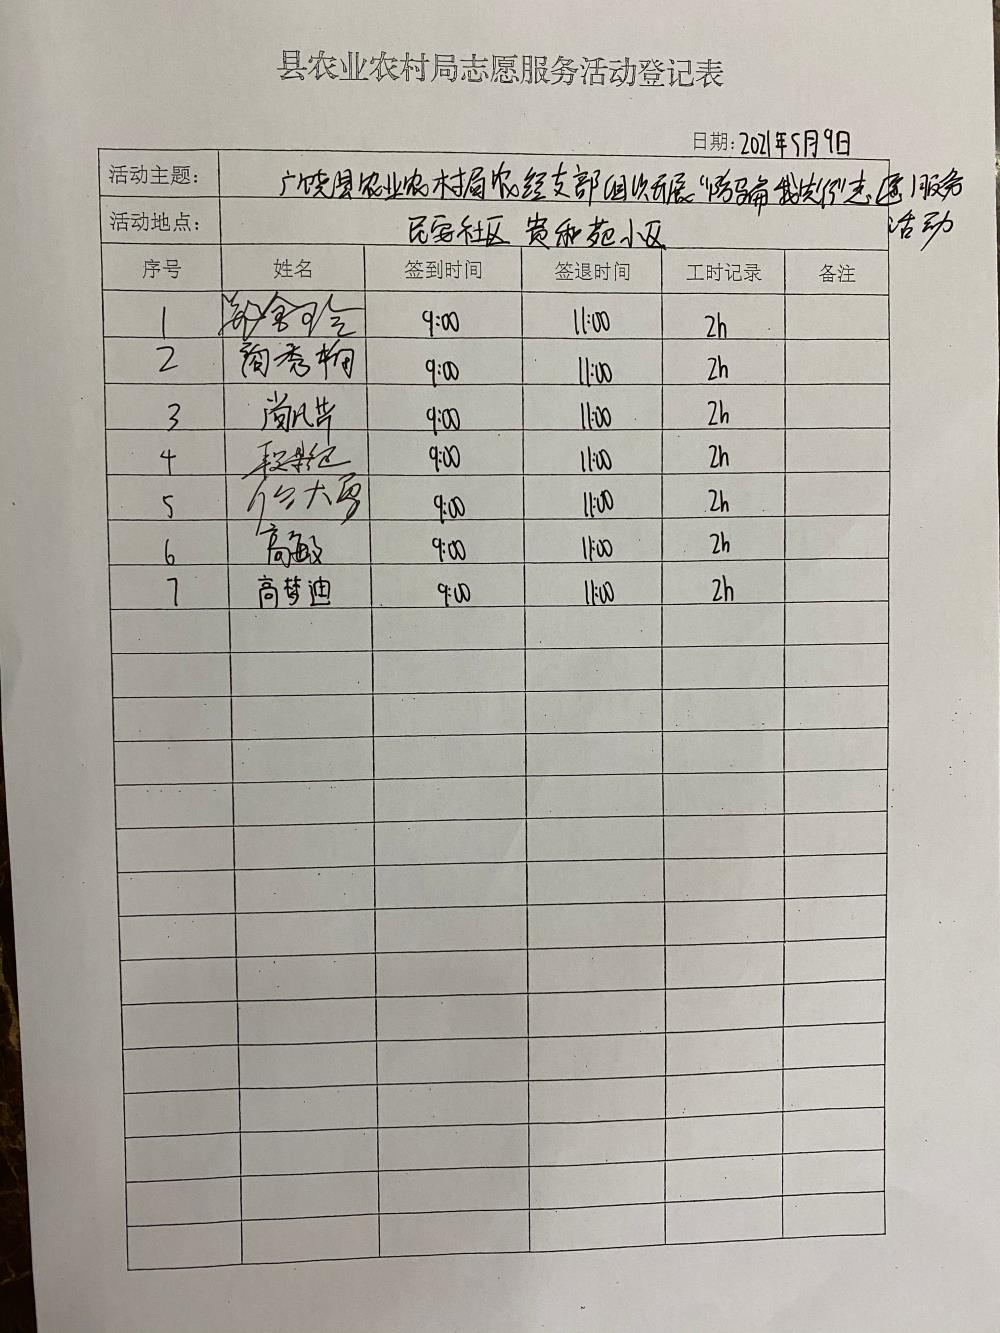 县农业农村局志愿服务活动登记表
日期: 2021年5月9日
活动主题: 广饶县农业农村局农经支部组织开展“防骗我先行”志愿服务
活动
活动地点: 民安社区 贵和苑小区
序号 姓名 签到时间 签退时间 工时记录 备注
1 9:00 11:00 2h
2 9:00 11:00 2h
3 尚凡华 9:00 11:00 2h
4 9:00 11:00 2h
5 9:00 11:00 2h
6 高敏 9:00 11:00 2h
7 高梦迪 9:00 11:00 2h